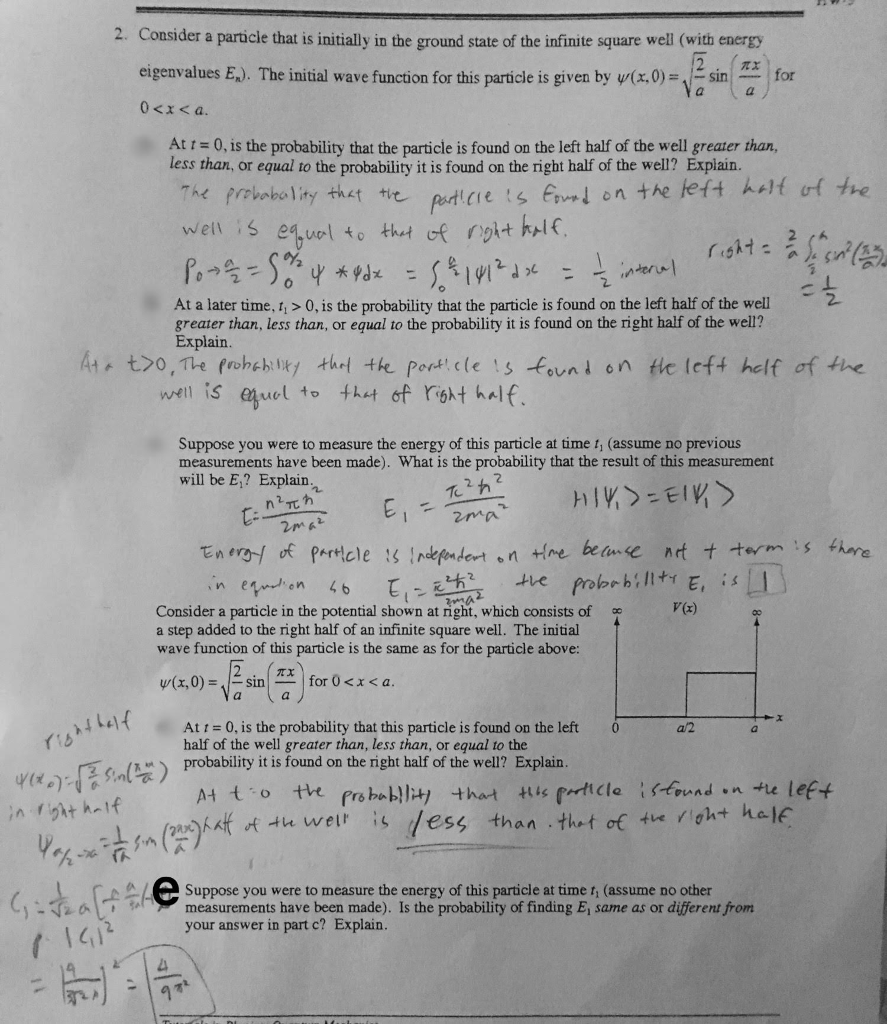 2. Consider a particle that is initially in the ground state of the infinite square well (with energy
eigenvalues Eₙ). The initial wave function for this particle is given by ψ(x,0) = √(2/a) sin(πx/a) for
0 < x < a.
At t = 0, is the probability that the particle is found on the left half of the well greater than,
less than, or equal to the probability it is found on the right half of the well? Explain.
The probabality that the particle is found on the left half of the
well is equal to that of right half.
P₀→a/2 = ∫₀^(a/2) ψ*ψdx = ∫₀^(a/2) |ψ|² dx = 1/2 interval
right = 2/a ∫ sin²(πx/a)
= 1/2
At a later time, t₁ > 0, is the probability that the particle is found on the left half of the well
greater than, less than, or equal to the probability it is found on the right half of the well?
Explain.
At t>0, The probability that the particle is found on the left half of the
well is equal to that of right half.
Suppose you were to measure the energy of this particle at time t₁ (assume no previous
measurements have been made). What is the probability that the result of this measurement
will be E₁? Explain.
E = n²πħ²/2ma² E₁ = π²ħ²/2ma² H|Ψ₁> = E|Ψ₁>
Energy of particle is independent on time because not t term is there
in equation so E₁ = π²ħ²/2ma² the probability E₁ is 1
Consider a particle in the potential shown at right, which consists of
a step added to the right half of an infinite square well. The initial
wave function of this particle is the same as for the particle above:
ψ(x,0) = √(2/a) sin(πx/a) for 0 < x < a.
∞ V(x) ∞
0 a/2 a x
At t = 0, is the probability that this particle is found on the left
half of the well greater than, less than, or equal to the
probability it is found on the right half of the well? Explain.
At t=0 the probability that this particle is found on the left
half of the well is less than . that of the right half
right half
in right half
e Suppose you were to measure the energy of this particle at time t₁ (assume no other
measurements have been made). Is the probability of finding E₁ same as or different from
your answer in part c? Explain.
|C₁|²
= 4/9π²